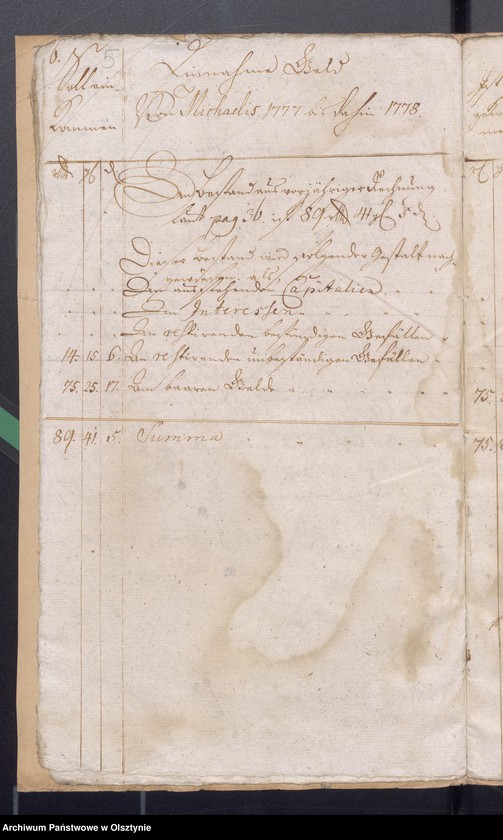 6. 5
Soll ein-
kommen
Einnahme Geld
Von Michaelis 1777 bis dahin 1778.
Der Bestand aus vorjähriger Rechnung
laut pag. 36. ist 89. 41 5
Dieser Bestand wird folgender Gestalt nach-
gewiesen als
An ausstehenden Capitalien
An Interessen
An restirenden beständigen Gefällen
14. 15. 6. An restirenden unbeständigen Gefällen
75. 25. 17. An baaren Gelde 75.
89. 41. 5. Summa 75.
Archiwum Państwowe w Olsztynie